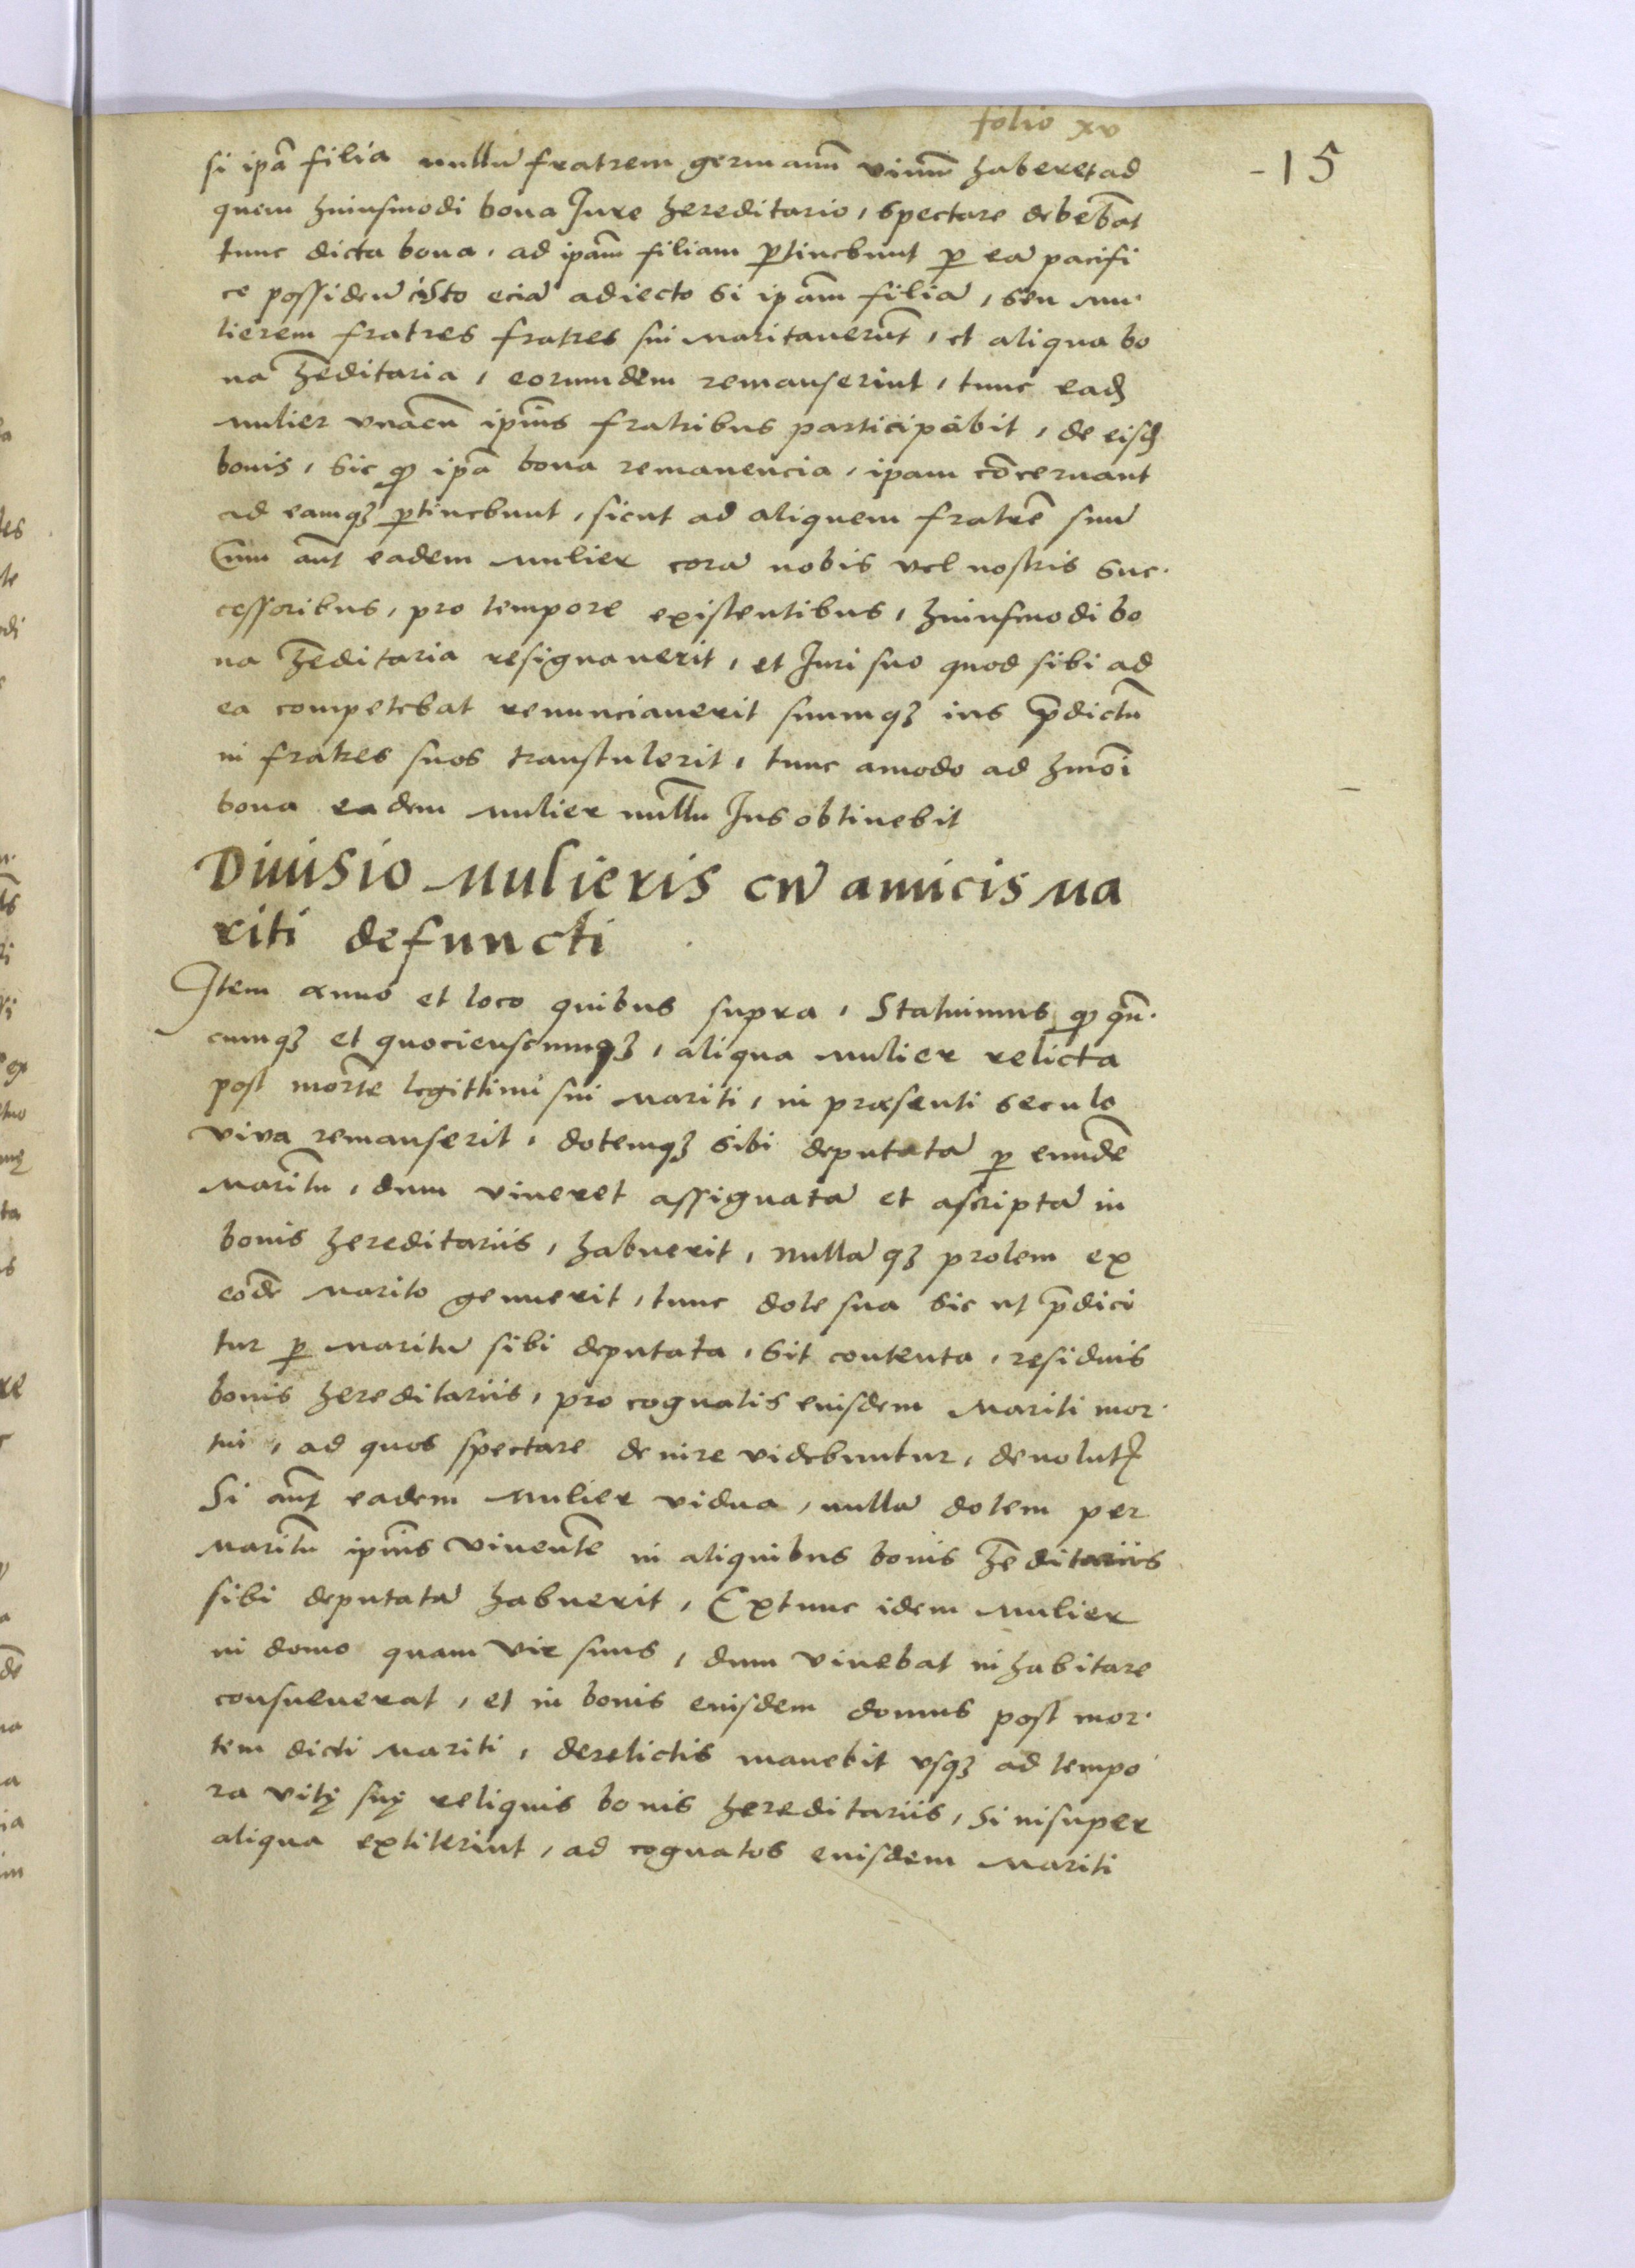 folio xv
- 15
si ip̃a filia nullũ fratrem germanũ viuũ haberet ad
quem huiusmodi bona Jure hereditario, spectare debebãt
tunc dicta bona, ad ip̃am filiam ꝑtinebunt ꝑ eã pacifi
ce possidẽ isto eciã adiecto si ip̃am filiã, seu mu
lierem fratres fratres sui maritauerũt, et aliqua bo
na h̃editaria, eorumdem remanserint, tunc eadẽ
mulier vnacũ ip̃ius fratribus participabit, de eisd̃
bonis, sic ꝙ ip̃a bona remanencia, ipam cõcernant
ad eamqꝫ ꝑtinebunt, sicut ad aliquem fratrẽ suũ
Cum aũt eadem mulier corã nobis vel nostris suc
cessoribus, pro tempore existentibus, huiusmodi bo
na h̃editaria resignauerit, et Juri suo quod sibi ad
ea competebat renunciauerit suumqꝫ ius p̃dictũ
in fratres suos transtulerit, tunc amodo ad hmõi
bona eadem mulier nullũ Jus obtinebit
Diuisio mulieris cũ amicis ma
riti defuncti
Item anno et loco quibus supra, Statuimus ꝙ qñ
cumqꝫ et quocienscumqꝫ, aliqua mulier relicta
post mortẽ legittimi sui mariti, in præsenti seculo
viva remanserit, dotemqꝫ sibi deputatã ꝑ eumdẽ
maritũ, dum viueret assignatã et ascriptã in
bonis hereditariis, habuerit, nullã qꝫ prolem ex
eodẽ marito genuerit, tunc dote sua sic ut p̃dici
tur ꝑ maritũ sibi deputata, sit contenta, residuis
bonis hereditariis, pro cognatis eiusdem mariti mor
tui, ad quos spectare de iure videbuntur, deuolutꝭ
Si aũt eadem mulier vidua, nullã dotem per
maritũ ip̃ius viuentẽ in aliquibus bonis h̃editariis
sibi deputatã habuerit, Extunc idem mulier
in domo quam vir suus, dum viuebat inhabitare
consueuerat, et in bonis eiusdem domus post mor
tem dicti mariti, derelictis manebit vsqꝫ ad tempo
ra vitę suę reliquis bonis hereditariis, si insuper
aliqua extiterint, ad cognatos eiusdem mariti